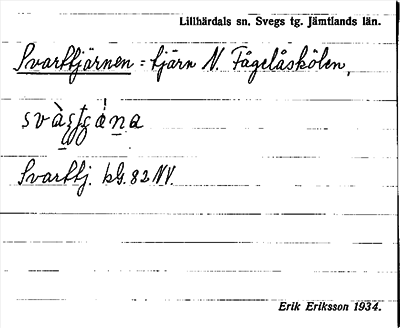 Lillhärdals sn, Svegs tg. Jämtlands län.
Svarttjärnen = tjärn N. Fågelåskölen,
Svarttj. kbl. 82 NV.
Erik Eriksson 1934.